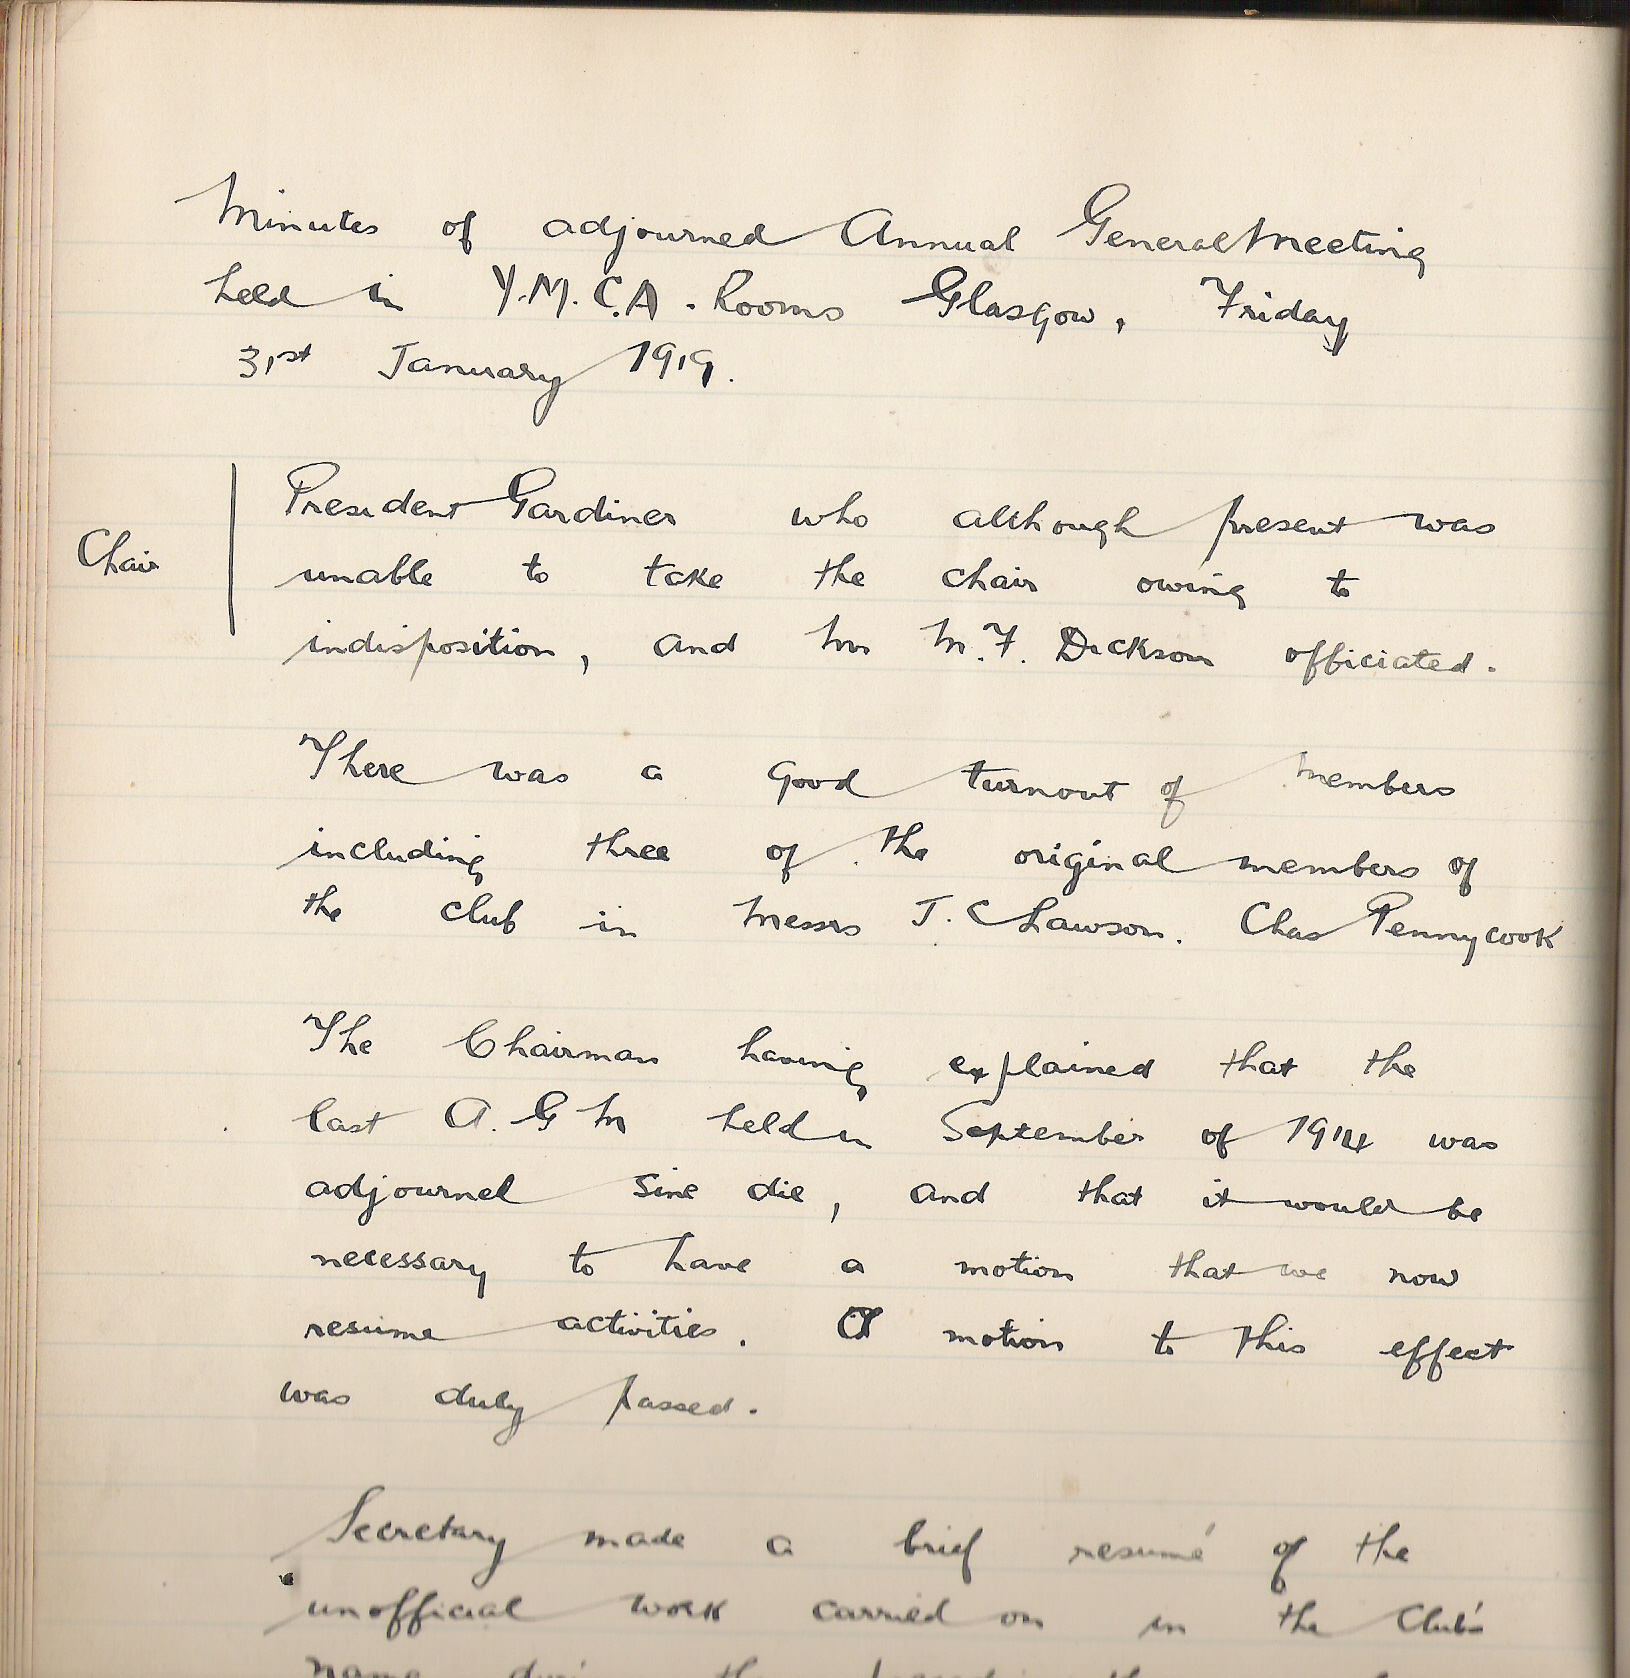 Minutes of adjourned Annual General Meeting
held in Y.M.C.A. Rooms Glasgow, Friday
31st January 1919.
President Gardiner who although present was
Chair
unable to take the chair owing to
indisposition, and Mr M.F. Dickson officiated.
There was a good turnout of members
including three of the original members of
the club in Messrs J. C Lawson. Chas Pennycook
The Chairman having explained that the
last A.G M held in September of 1914 was
adjourned sine die, and that it would be
necessary to have a motion that we now
resume activities. A motion to this effect
was duly passed.
Secretary made a brief resumé of the
unofficial work carried on in the Club's
name